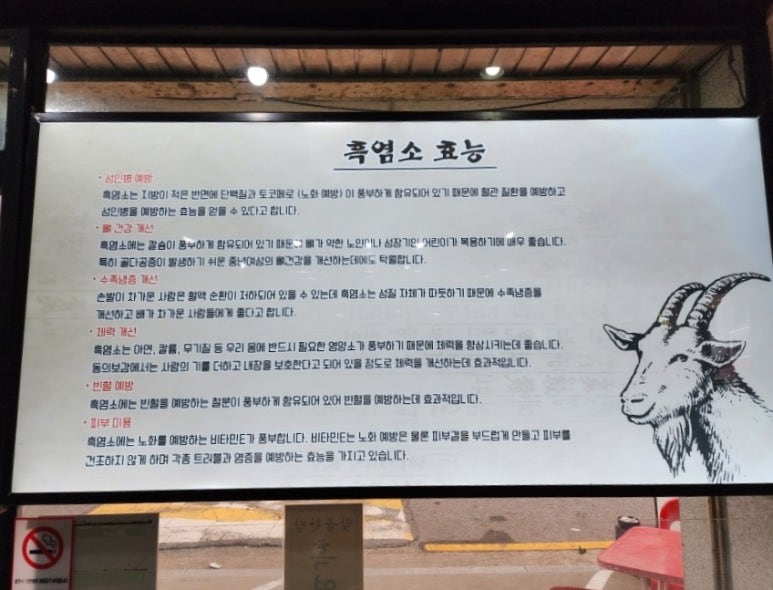 흑염소 효능
· 성인병 예방
흑염소는 지방이 적은 반면에 단백질과 토코페로 (노화 예방) 이 풍부하게 함유되어 있기 때문에 혈관 질환을 예방하고
성인병을 예방하는 효능을 얻을 수 있다고 합니다.
· 뼈 건강 개선
흑염소에는 칼슘이 풍부하게 함유되어 있기 때문에 뼈가 약한 노인이나 성장기의 어린이가 복용하기에 매우 좋습니다.
특히 골다공증이 발생하기 쉬운 중년여성의 뼈건강을 개선하는데에도 탁월합니다.
· 수족냉증 개선
손발이 차가운 사람은 혈액 순환이 저하되어 있을 수 있는데 흑염소는 성질 자체가 따듯하기 때문에 수족냉증을
개선하고 배가 차가운 사람들에게 좋다고 합니다.
· 체력 개선
흑염소는 아연, 칼륨, 무기질 등 우리 몸에 반드시 필요한 영양소가 풍부하기 때문에 체력을 향상시키는데 좋습니다.
동의보감에서는 사람의 기를 더하고 내장을 보호한다고 되어 있을 정도로 체력을 개선하는데 효과적입니다.
· 빈혈 예방
흑염소에는 빈혈을 예방하는 철분이 풍부하게 함유되어 있어 빈혈을 예방하는데 효과적입니다.
· 피부 미용
흑염소에는 노화를 예방하는 비타민E가 풍부합니다. 비타민E는 노화 예방은 물론 피부결을 부드럽게 만들고 피부를
건조하지 않게 하며 각종 트러블과 염증을 예방하는 효능을 가지고 있습니다.